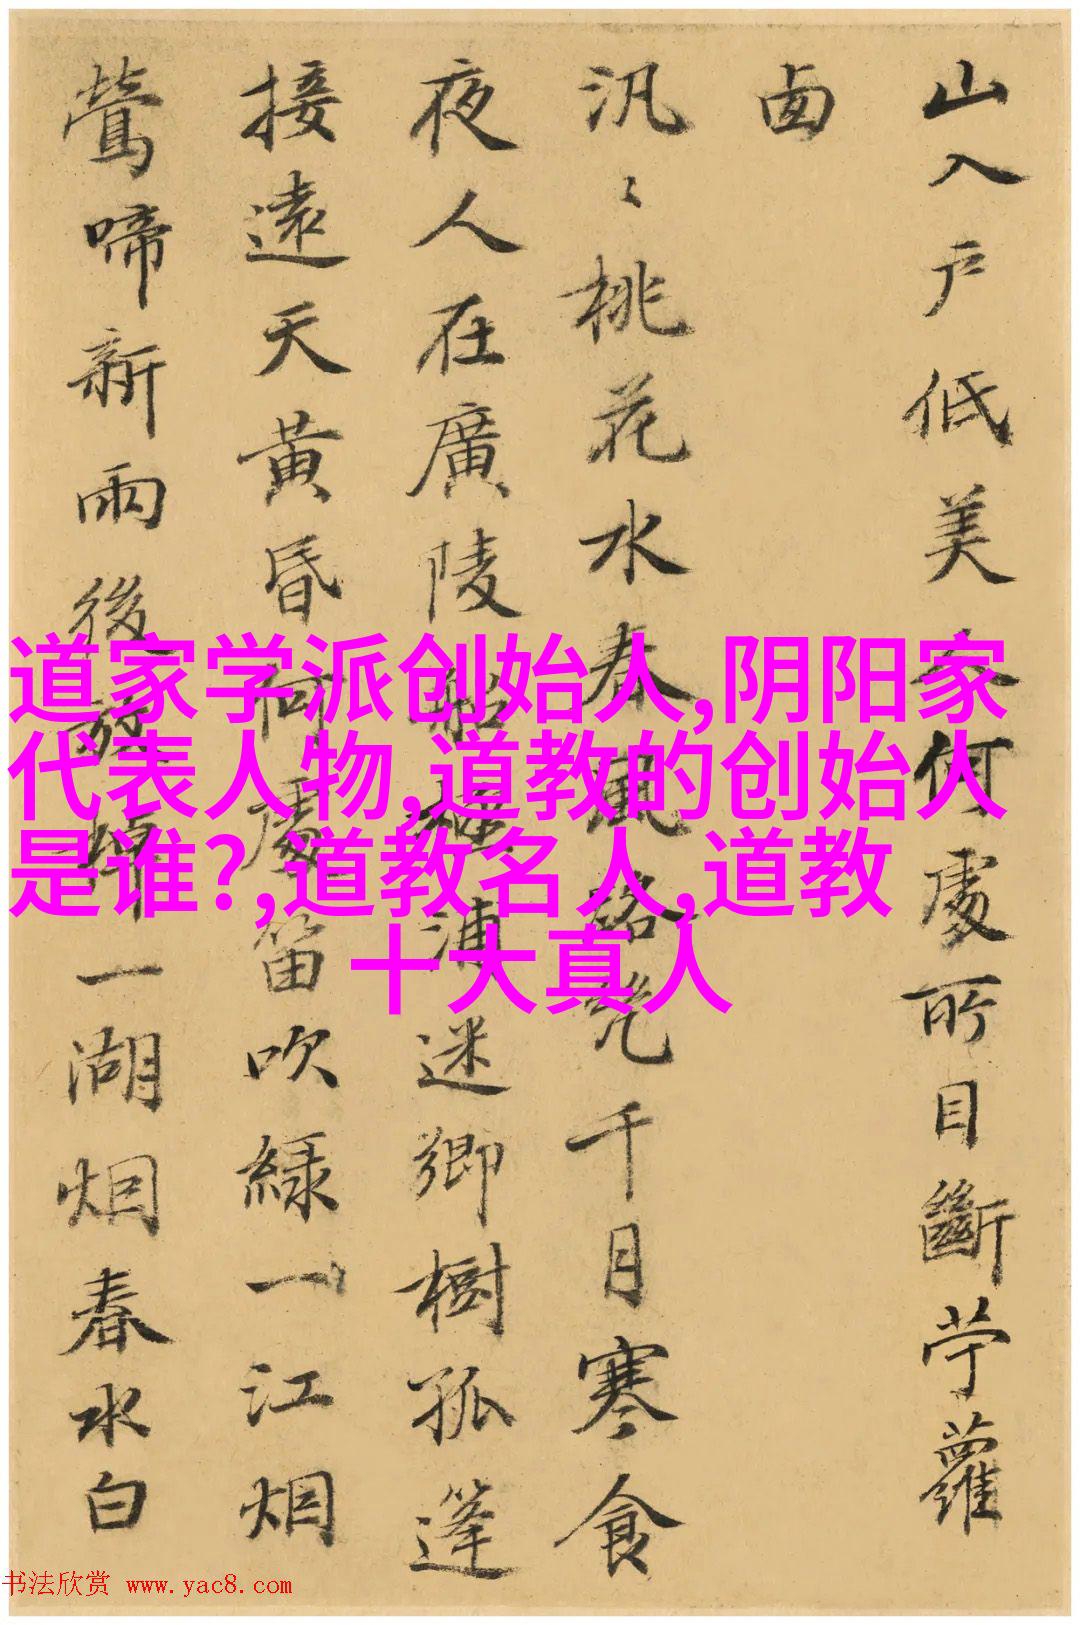 山入户低美人何處所目斷苧蘿
卤
汎〻桃花水春風路幾千月寒食
夜人在廣陵船極浦迷鄉樹孤篷
接遠天黃昏何處笛吹綠一江烟
鶯啼新雨後放棹一湖烟春水白
道家学派创始人,阴阳家
代表人物,道教的创始人
是谁?,道教名人,道教
十大真人
书法欣赏 www.yac8.com